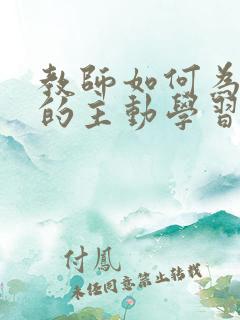 教師如何為
的主動學習
付鳳
未經同意禁止轉載